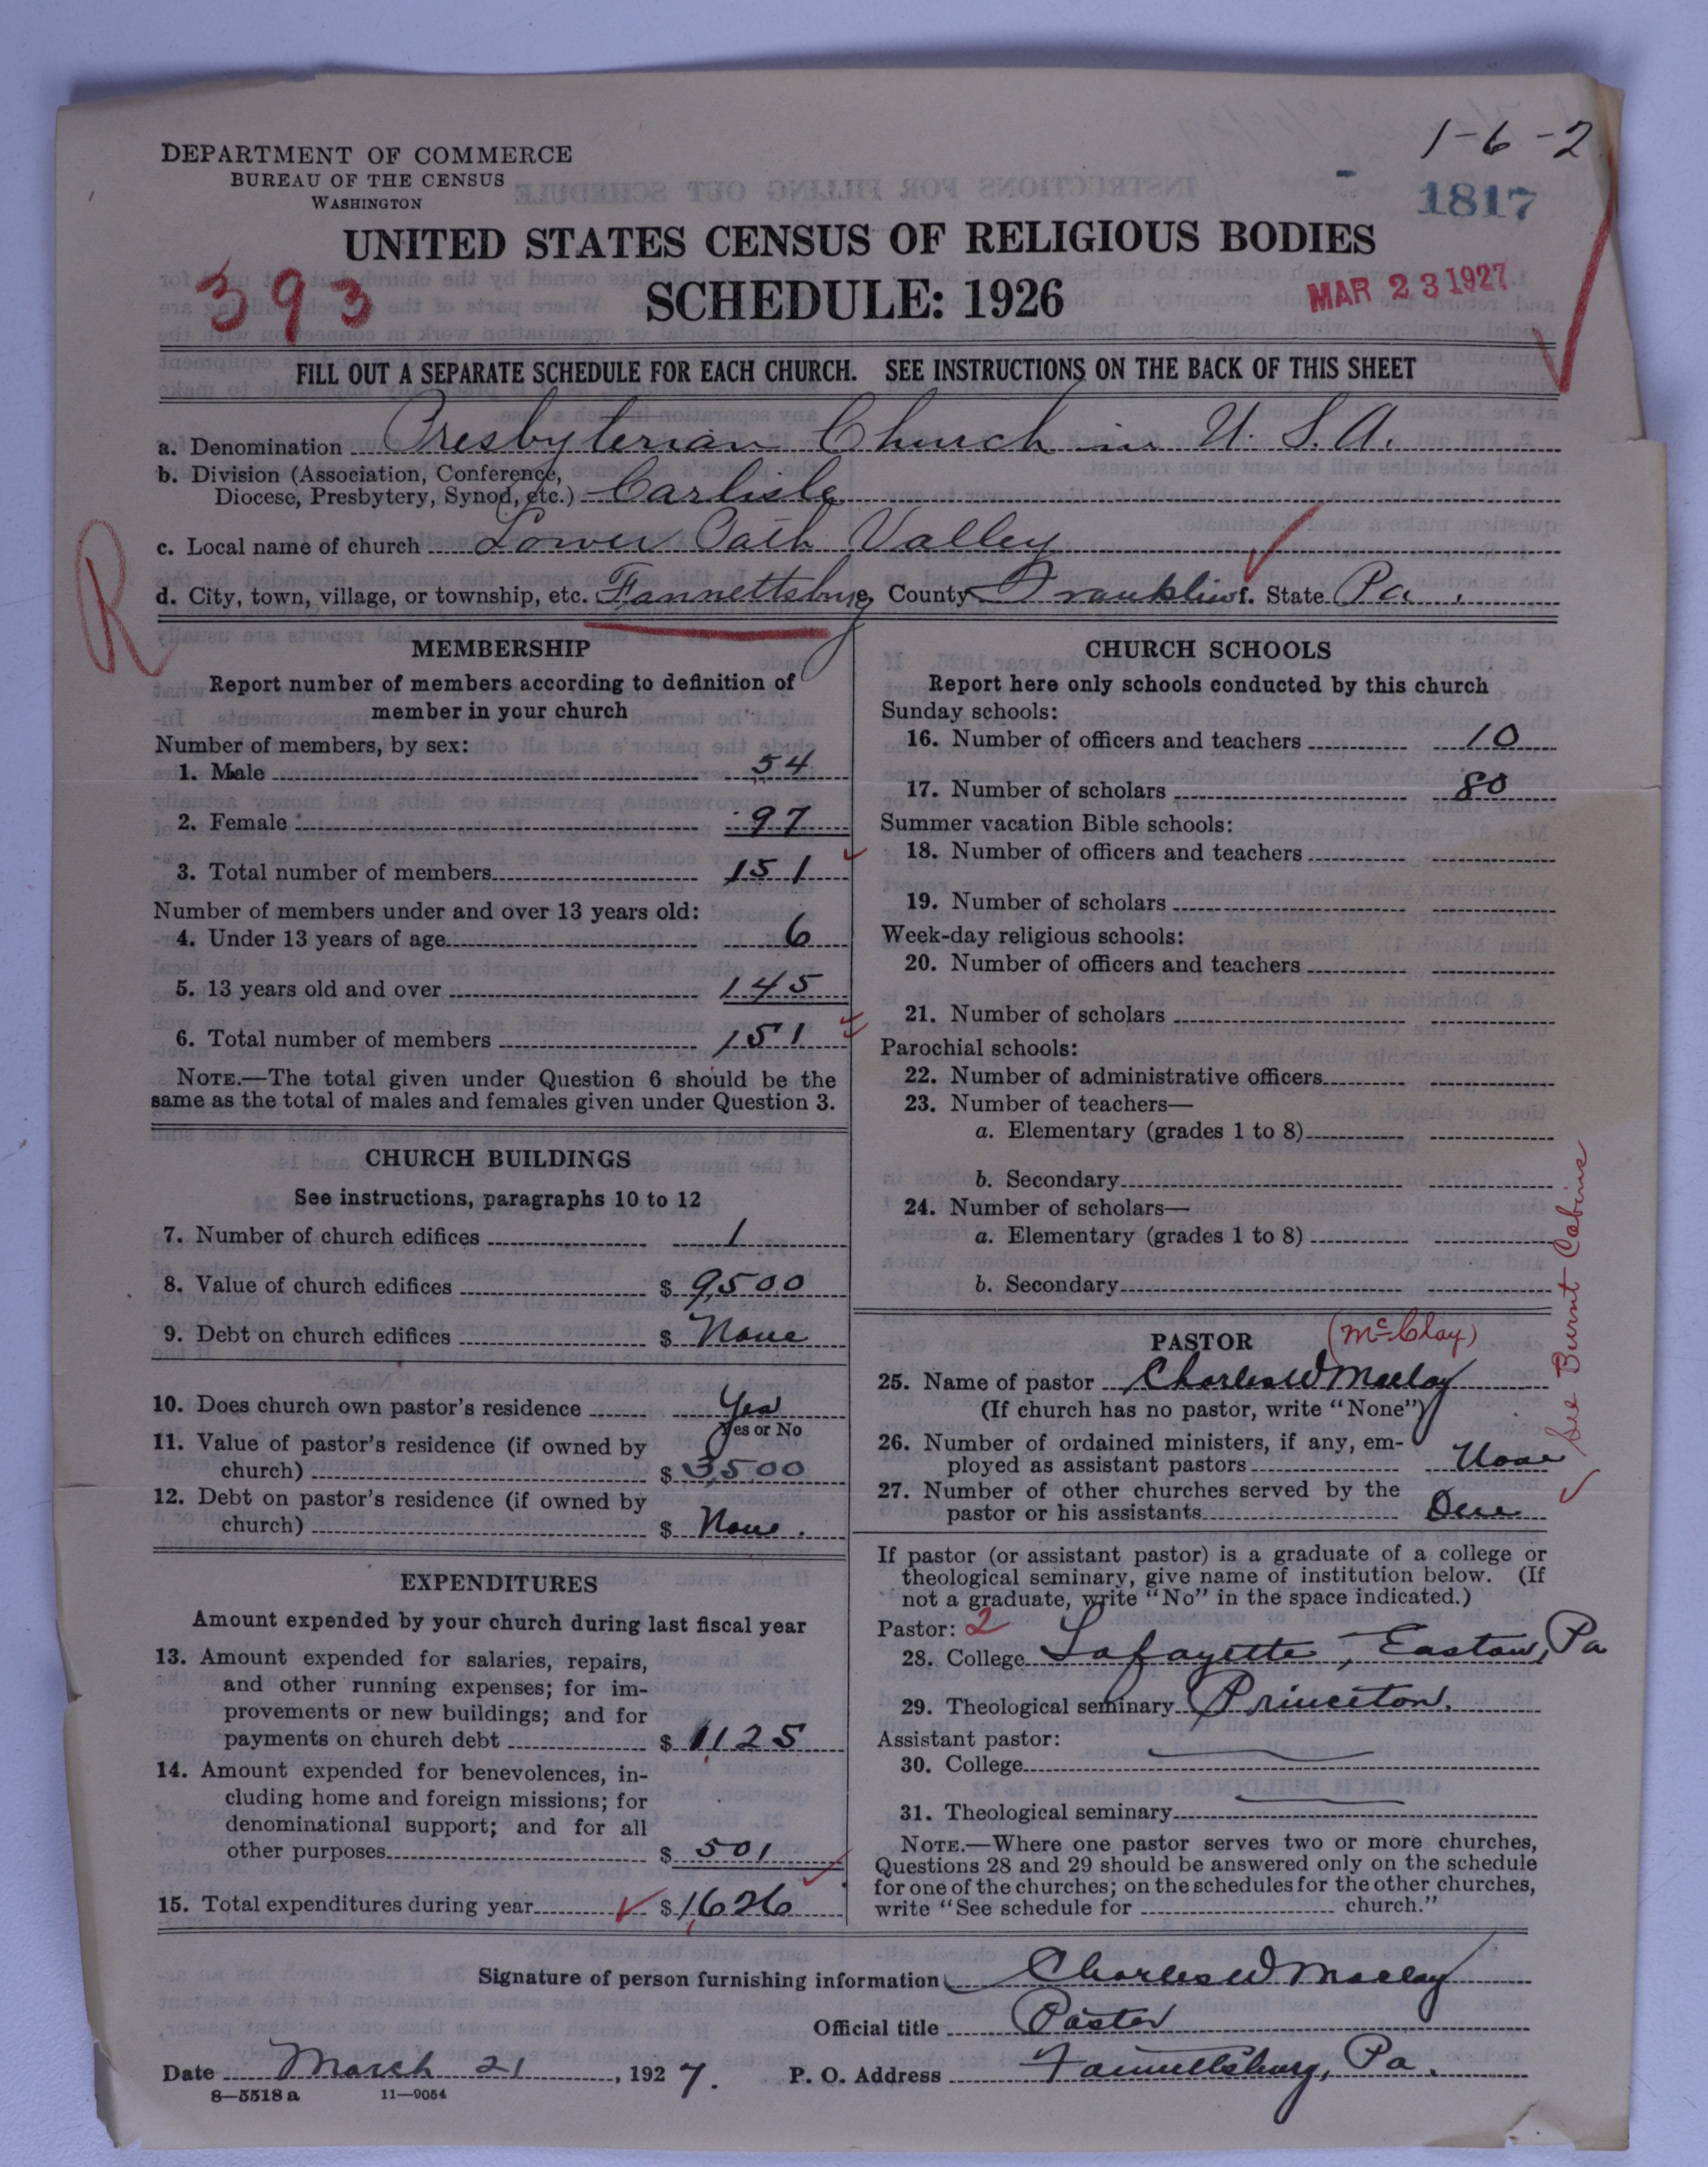 1-6-2
DEPARTMENT OF COMMERCE
BUREAU OF THE CENSUS
WASHINGTON
1817
UNITED STATES CENSUS OF RELIGIOUS BODIES
393
SCHEDULE: 1926
MAR 23 1927
FILL OUT A SEPARATE SCHEDULE FOR EACH CHURCH. SEE INSTRUCTIONS ON THE BACK OF THIS SHEET
a. Denomination Presbyterian Church in U. S. A.
b. Division (Association, Conference,
Diocese, Presbytery, Synod, etc.) Carlisle
c. Local name of church Lower Path Valley
d. City, town, village, or township, etc. Fannettsburg e. County Franklin f. State Pa.
R
MEMBERSHIP
Report number of members according to definition of
member in your church
Number of members, by sex:
1. Male 54
2. Female 97
3. Total number of members 151
Number of members under and over 13 years old:
4. Under 13 years of age 6
5. 13 years old and over 145
6. Total number of members 151
NOTE.—The total given under Question 6 should be the
same as the total of males and females given under Question 3.
CHURCH BUILDINGS
See instructions, paragraphs 10 to 12
7. Number of church edifices 1
8. Value of church edifices $ 9,500
9. Debt on church edifices $ None
10. Does church own pastor's residence Yes
Yes or No
11. Value of pastor's residence (if owned by
church) $ 3,500
12. Debt on pastor's residence (if owned by
church) $ None.
EXPENDITURES
Amount expended by your church during last fiscal year
13. Amount expended for salaries, repairs,
and other running expenses; for im-
provements or new buildings; and for
payments on church debt $ 1,125
14. Amount expended for benevolences, in-
cluding home and foreign missions; for
denominational support; and for all
other purposes $ 501
15. Total expenditures during year $ 1,626
CHURCH SCHOOLS
Report here only schools conducted by this church
Sunday schools:
16. Number of officers and teachers 10
17. Number of scholars 80
Summer vacation Bible schools:
18. Number of officers and teachers
19. Number of scholars
Week-day religious schools:
20. Number of officers and teachers
21. Number of scholars
Parochial schools:
22. Number of administrative officers
23. Number of teachers—
a. Elementary (grades 1 to 8)
b. Secondary
24. Number of scholars—
a. Elementary (grades 1 to 8)
b. Secondary
See Burnt Cabins
PASTOR (McClay)
25. Name of pastor Charles W Maclay
(If church has no pastor, write "None")
26. Number of ordained ministers, if any, em-
ployed as assistant pastors None
27. Number of other churches served by the
pastor or his assistants One
If pastor (or assistant pastor) is a graduate of a college or
theological seminary, give name of institution below. (If
not a graduate, write "No" in the space indicated.)
Pastor: 2
28. College Lafayette, Easton, Pa
29. Theological seminary Princeton.
Assistant pastor:
30. College
31. Theological seminary
NOTE.—Where one pastor serves two or more churches,
Questions 28 and 29 should be answered only on the schedule
for one of the churches; on the schedules for the other churches,
write "See schedule for church."
Signature of person furnishing information Charles W Maclay
Official title Pastor
Date March 21, 1927. P. O. Address Fannettsburg, Pa.
8—5518 a 11—9054